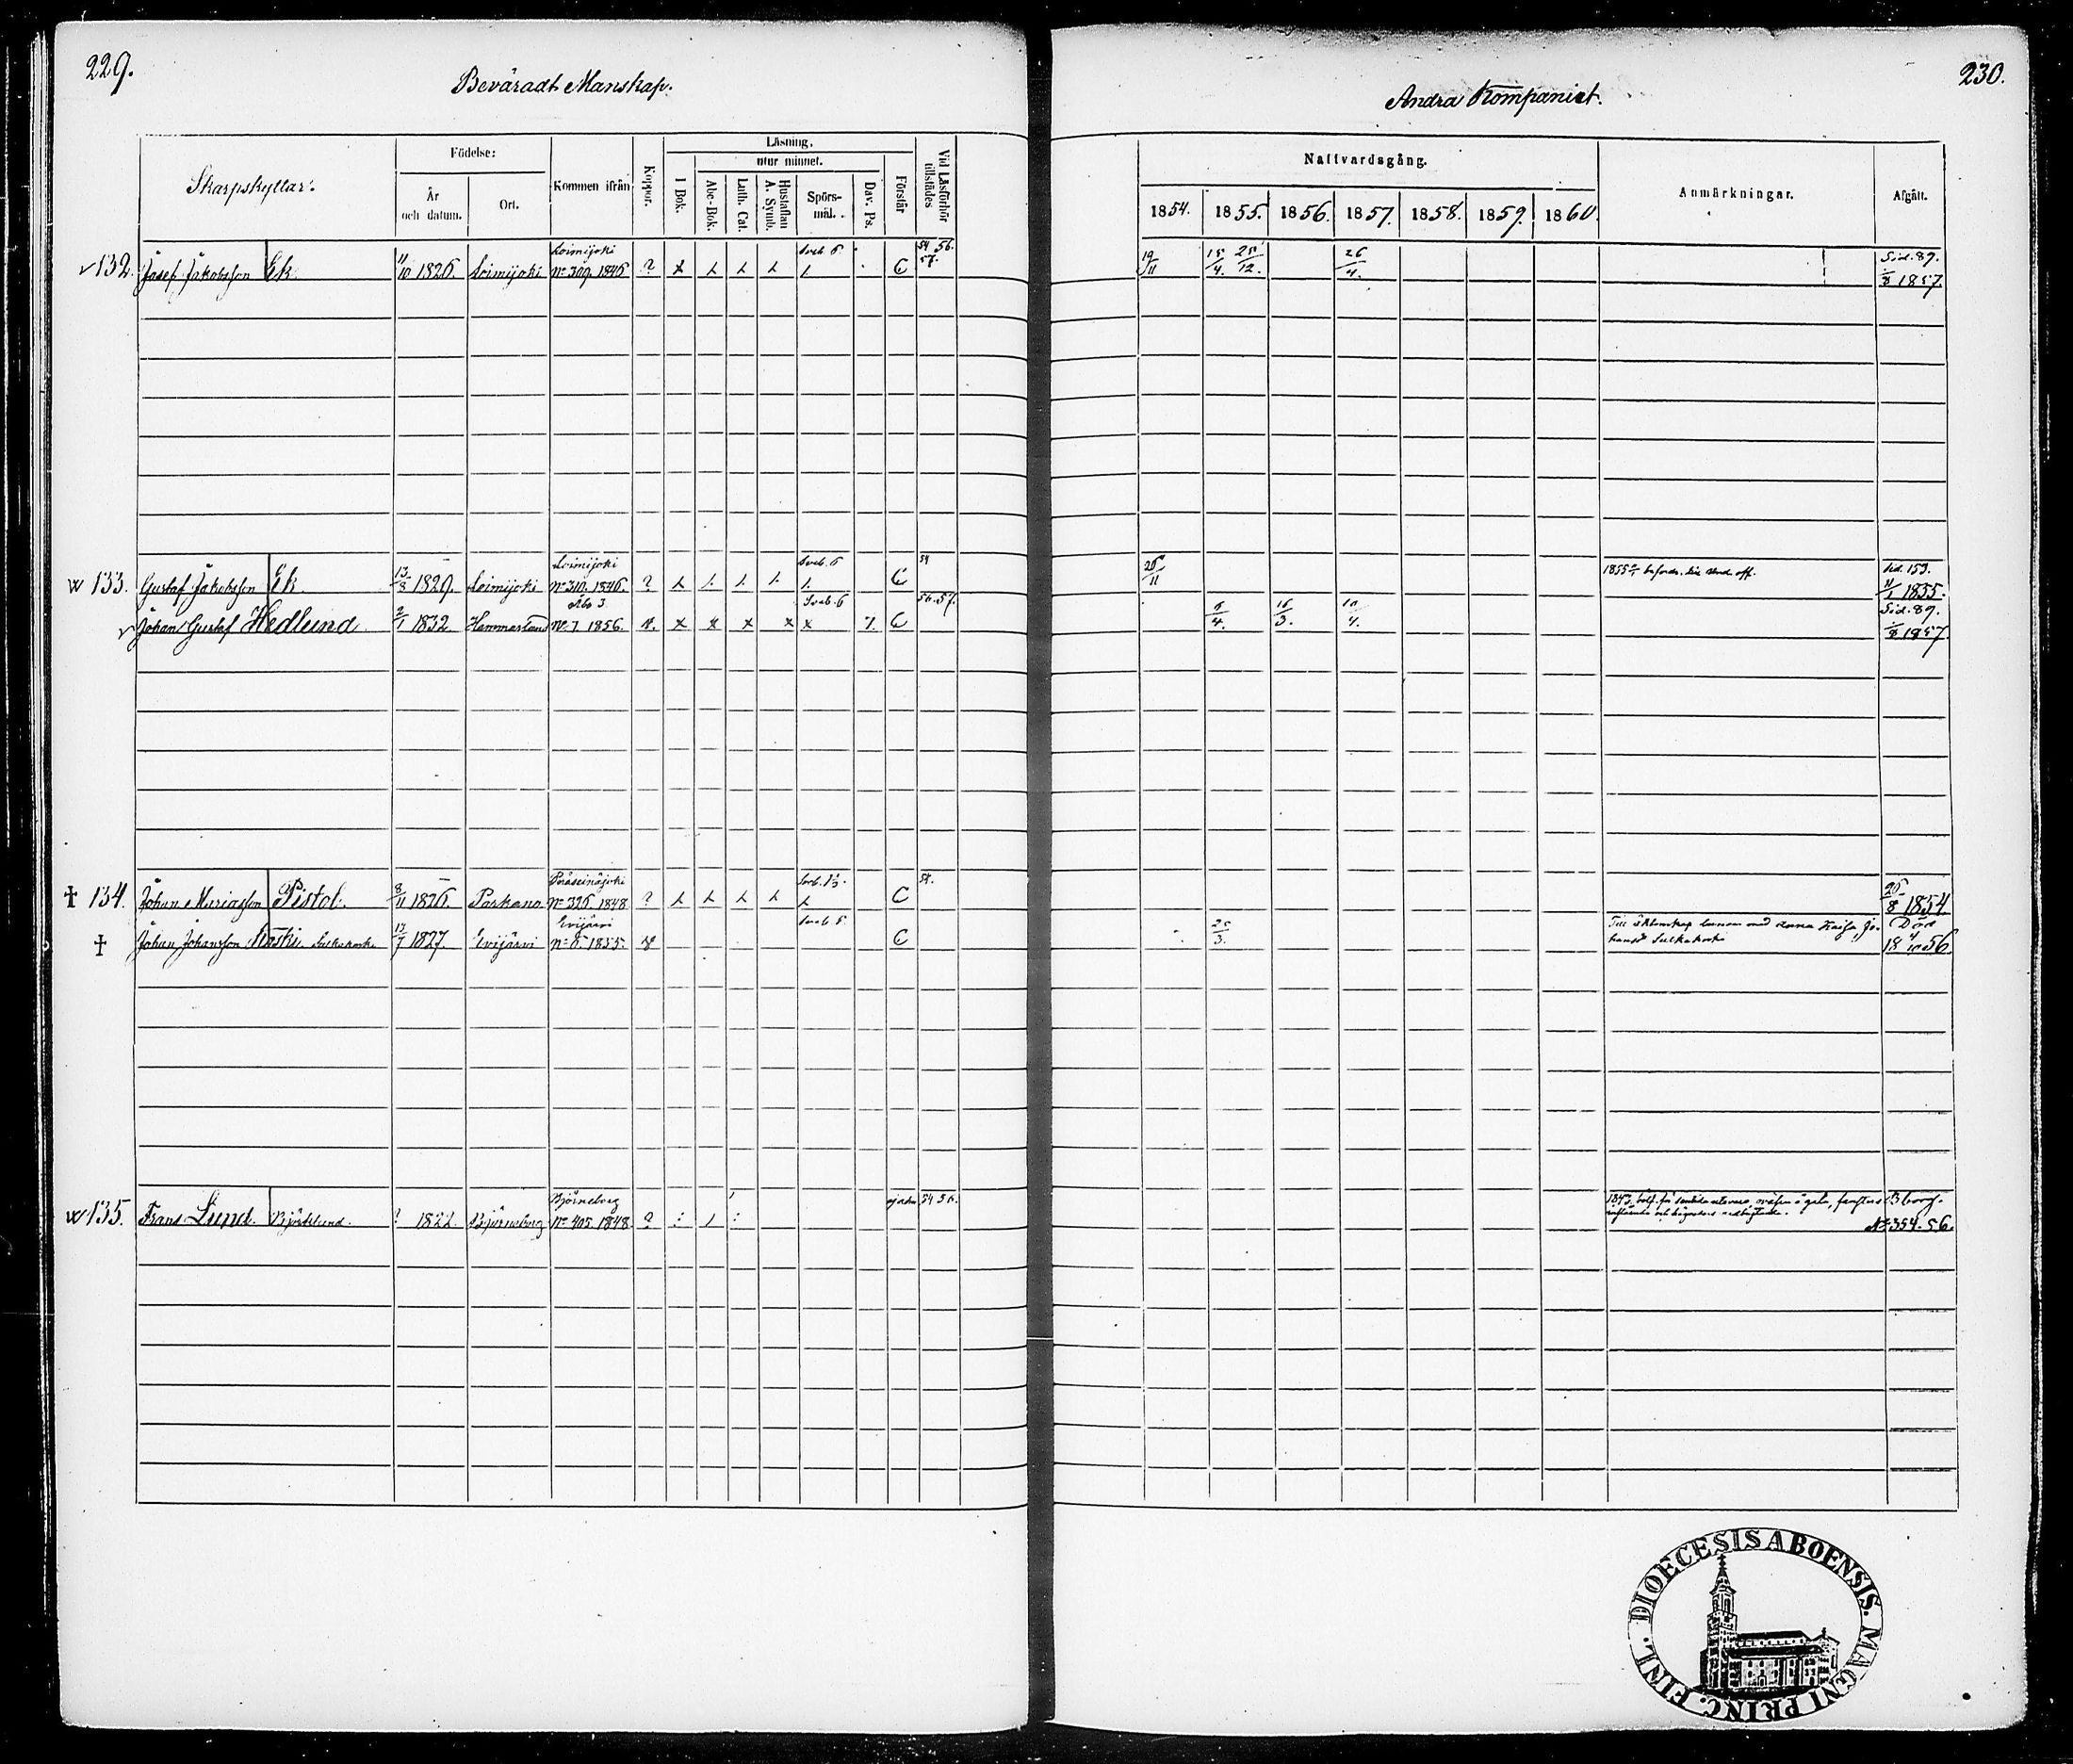 229.
Beväradt Manskap.
Skarpskyttar:
Födelse:
År och datum.
Ort.
Kommen ifrån
Koppor.
Läsning.
I Bok.
utur minnet.
Abc-Bok.
Luth. Cat.
Hustaflan A. Symb.
Spörsmål.
Dav. Ps.
Förstår
Vid Läsförhör tillstädes
132. Josef Jakobsson Ek. 11/10 1826 Loimijoki Loimijoki No 309. 1846 ? Sveb. 6 C 54 56. 57.
w 133. Gustaf Jakobsson Ek 13/8 1829. Loimijoki Loimijoki No 310. 1846. ? Sveb. 6 C 54
Johan Gustaf Hedlund 2/1 1832 Hammarland Åbo 3 No 7. 1856. v. x x x x x Sveb. 6 7. C 56. 57.
† 134. Johan Mariasson Pistol. 8/11 1826. Parkano No 326. 1848 ? C 54.
† Johan Johansson Koski 13/7 1827. Evijärvi Evijärvi No 6. 1855. v Sveb. 5 C
w 135. Frans Lund. Björklund. ? 1822. Björneborg Björneborg No 405. 1848. ? 54 56.
230.
Andra Kompaniet.
Nattvardsgång.
1854. 1855. 1856. 1857. 1858. 1859. 1860.
Anmärkningar.
Afgått.
19/11 15/4. 25/12. 26/4. Sid. 89. /8 1857.
26/11 1855 befordr. till Und. off. Sid. 153. 11/1 1855.
6/4. 16/3. 10/4. Sid. 89. /8 1857.
26/8 1854.
25/3. Till äktenskap med Anna Kaisa Johansd Död
18 4/10 56
1843 Bborg.
No 354. 56.
FINL. DIOECESIS ABOENSIS. MAGNI PRINC.